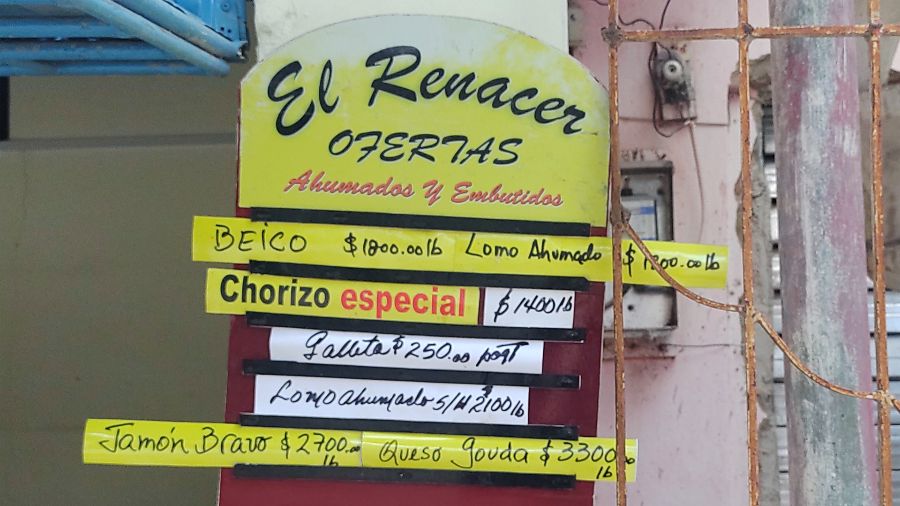 El Renacer
OFERTAS
Ahumados Y Embutidos
BEICO $1800.00lb Lomo Ahumado $1800.00lb
Chorizo especial $1400lb
Galleta $250.00 paqt
Lomo ahumado S/H $2100lb
Jamón Bravo $2700.00 lb Queso gouda $3300.00 lb